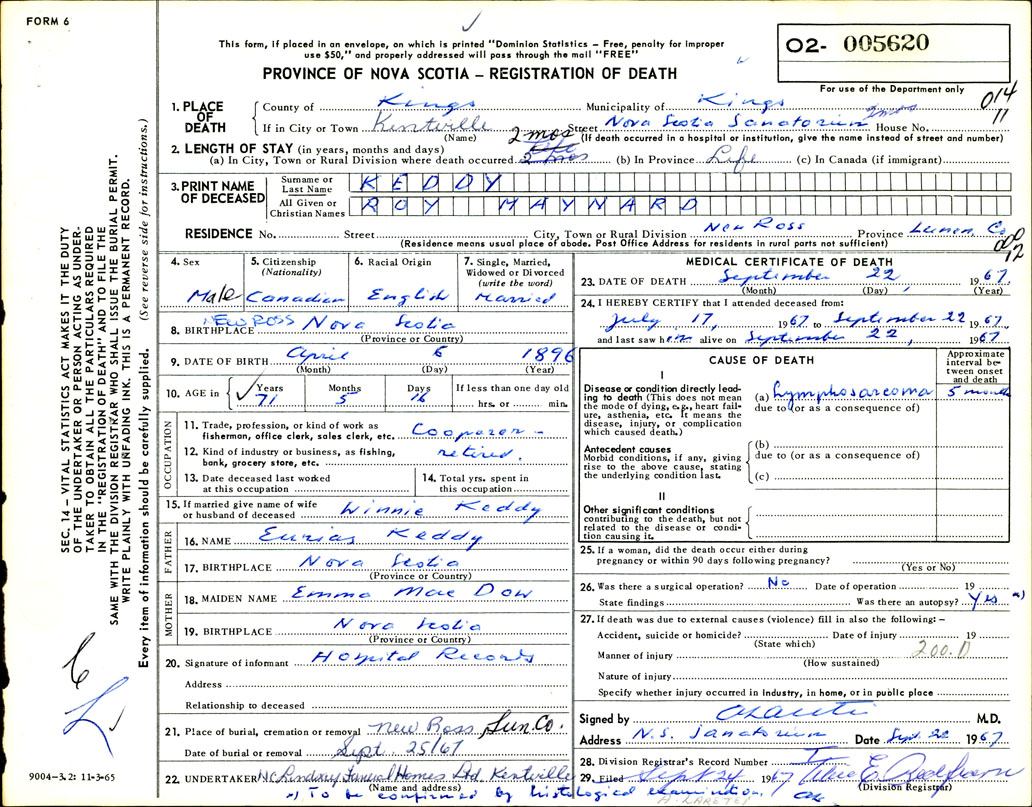 FORM 6
This form, if placed in an envelope, on which is printed "Dominion Statistics – Free, penalty for improper
use $50," and properly addressed will pass through the mail "FREE"
PROVINCE OF NOVA SCOTIA – REGISTRATION OF DEATH
O2- 005620
For use of the Department only
014
11
1. PLACE OF DEATH
County of Kings Municipality of Kings
If in City or Town Kentville Street Nova Scotia Sanatorium House No. 2 mos
(Name) (If death occurred in a hospital or institution, give the name instead of street and number)
2. LENGTH OF STAY (in years, months and days) 2 mos
(a) In City, Town or Rural Division where death occurred 2 mos (b) In Province Life (c) In Canada (if immigrant)
3. PRINT NAME OF DECEASED
Surname or Last Name KEDDY
All Given or Christian Names ROY MAYNARD
RESIDENCE No. Street City, Town or Rural Division New Ross Province Lunen. Co
(Residence means usual place of abode. Post Office Address for residents in rural parts not sufficient)
000
12
4. Sex Male
5. Citizenship (Nationality) Canadian
6. Racial Origin English
7. Single, Married, Widowed or Divorced (write the word) Married
8. BIRTHPLACE NEW ROSS Nova Scotia
(Province or Country)
9. DATE OF BIRTH April 6 1896
(Month) (Day) (Year)
10. AGE in Years 71 Months 5 Days 16 If less than one day old hrs. or min.
OCCUPATION
11. Trade, profession, or kind of work as fisherman, office clerk, sales clerk, etc. Cooperer –
12. Kind of industry or business, as fishing, bank, grocery store, etc. retired.
13. Date deceased last worked at this occupation
14. Total yrs. spent in this occupation
15. If married give name of wife or husband of deceased Winnie Keddy
FATHER
16. NAME Eurias Keddy
17. BIRTHPLACE Nova Scotia
(Province or Country)
MOTHER
18. MAIDEN NAME Emma Mae Dow
19. BIRTHPLACE Nova Scotia
(Province or Country)
20. Signature of informant Hospital Records
Address
Relationship to deceased
21. Place of burial, cremation or removal New Ross Lun. Co.
Date of burial or removal Sept 25/67
22. UNDERTAKER Lindsay Funeral Homes Ltd Kentville
(Name and address)
*) To be confirmed by histological examination.
MEDICAL CERTIFICATE OF DEATH
23. DATE OF DEATH September 22, 1967
(Month) (Day) (Year)
24. I HEREBY CERTIFY that I attended deceased from:
July 17, 1967 to September 22 1967
and last saw him alive on September 22, 1967
CAUSE OF DEATH
Approximate interval between onset and death
I
Disease or condition directly leading to death (This does not mean the mode of dying, e.g., heart failure, asthenia, etc. It means the disease, injury, or complication which caused death.)
(a) Lymphosarcoma 5 months
due to (or as a consequence of)
Antecedent causes
Morbid conditions, if any, giving rise to the above cause, stating the underlying condition last.
(b)
due to (or as a consequence of)
(c)
II
Other significant conditions
contributing to the death, but not related to the disease or condition causing it.
25. If a woman, did the death occur either during
pregnancy or within 90 days following pregnancy?
(Yes or No)
26. Was there a surgical operation? No Date of operation 19
State findings Was there an autopsy? Yes *)
27. If death was due to external causes (violence) fill in also the following: –
Accident, suicide or homicide? Date of injury 19
(State which)
Manner of injury 200.0
(How sustained)
Nature of injury
Specify whether injury occurred in industry, in home, or in public place
Signed by M.D.
Address N.S. Sanatorium Date Sept. 22 1967
28. Division Registrar's Record Number
29. Filed Sept 24 1967
(Division Registrar)
SEC. 14 – VITAL STATISTICS ACT MAKES IT THE DUTY
OF THE UNDERTAKER OR PERSON ACTING AS UNDER-
TAKER TO OBTAIN ALL THE PARTICULARS REQUIRED
IN THE "REGISTRATION OF DEATH" AND TO FILE THE
SAME WITH THE DIVISION REGISTRAR WHO SHALL ISSUE THE BURIAL PERMIT.
WRITE PLAINLY WITH UNFADING INK. THIS IS A PERMANENT RECORD.
Every item of information should be carefully supplied. (See reverse side for instructions.)
9004-3.2: 11-3-65